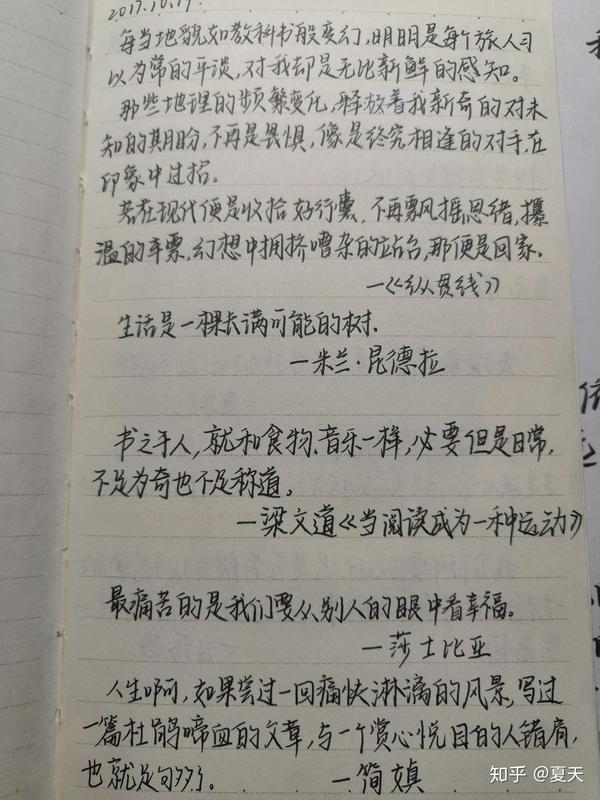 2017.10.19.
每当地貌如教科书般变幻,明明是每个旅人司
以为常的平谈,对我却是无比新鲜的感知。
那些地理的频繁变化,释放着我新奇的对未
知的期盼,不再是畏惧,像是终究相逢的对手,在
印象中过招。
若在现代便是收拾好行囊,不再飘摇思绪,攥
温的车票,幻想中拥挤嘈杂的站台,那便是回家。
—《纵贯线》
生活是一棵长满可能的树.
—米兰·昆德拉
书之于人,就和食物、音乐一样,必要但是日常,
不足为奇也不足称道。
—梁文道《当阅读成为一种运动》
最痛苦的是我们要从别人的眼中看幸福。
—莎士比亚
人生啊,如果尝过一回痛快淋漓的风景,写过
一篇杜鹃啼血的文章,与一个赏心悦目的人错肩,
也就足够了。 —简媜
知乎 @夏天